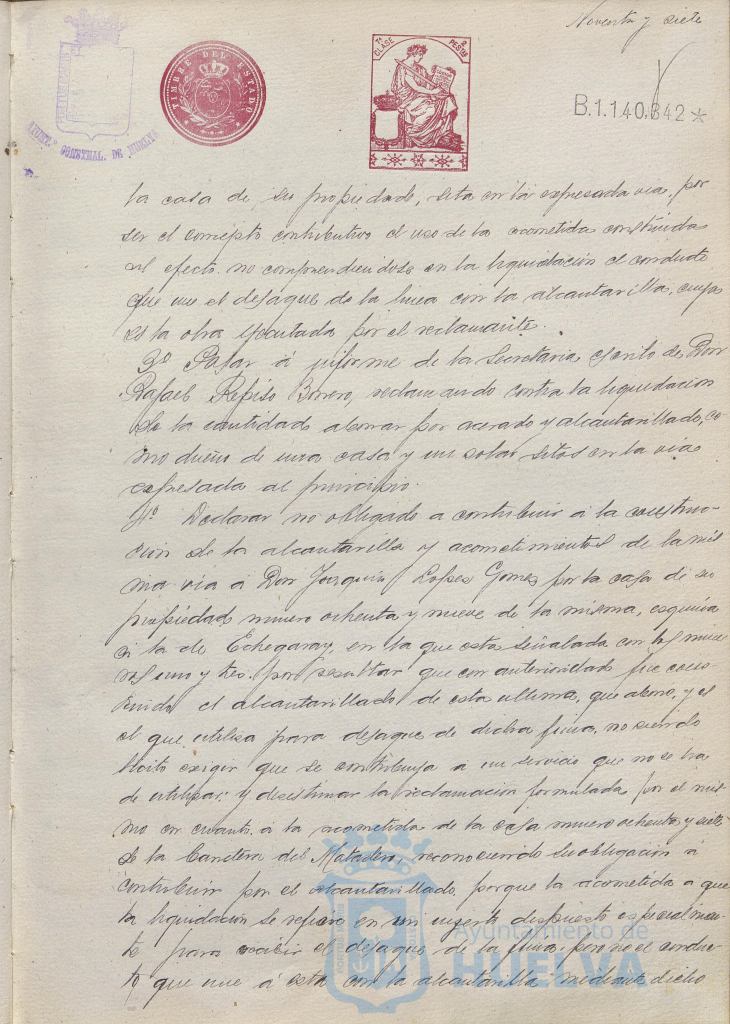 Noventa y siete
TIMBRE DEL ESTADO
1ª CLASE 2 PESTAS
B.1.140.842*
AYUNTº CONSTNAL. DE HUELVA
la casa de su propiedad, sita en la expresada via, por
ser el concepto contributivo el uso de la acometida construida
al efecto, no comprendiendose en la liquidación el conducto
que une el desagüe de la finca con la alcantarilla, cuya
es la obra ejecutada por el reclamante.
3º Pasar á informe de la Secretaria escrito de Don
Rafael Repiso Borrero, reclamando contra la liquidacion
de la cantidad á abonar por acerado y alcantarillado, co-
mo dueño de una casa y un solar sitos en la via
expresada al principio.
4º Declarar no obligado a contribuir á la construc-
cion de la alcantarilla y acometimientos de la mis-
ma via á Don Joaquin Lopes Gomes por la casa de su
propiedad numero ochenta y nueve de la misma, esquina
á la de Echegaray, en la que esta señalada con los nume-
ros uno y tres, por resultar que con anterioridad fue cons-
truido el alcantarillado de esta ultima, que abonó, y es
el que utiliza para desague de dicha finca, no siendo
licito exigir que se contribuya a un servicio que no se ha
de utilizar; y desestimar la reclamacion formulada por el mis-
mo en cuanto á la acometida de la casa numero ochenta y siete
de la Carretera del Matadero, reconociendo su obligacion á
contribuir por el alcantarillado, porque la acometida a que
la liquidacion se refiere es un ingerto dispuesto especialmen-
te para recibir el desague de la finca, pero no el conduc-
to que une á esta con la alcantarilla mediante dicho
Ayuntamiento de
HUELVA